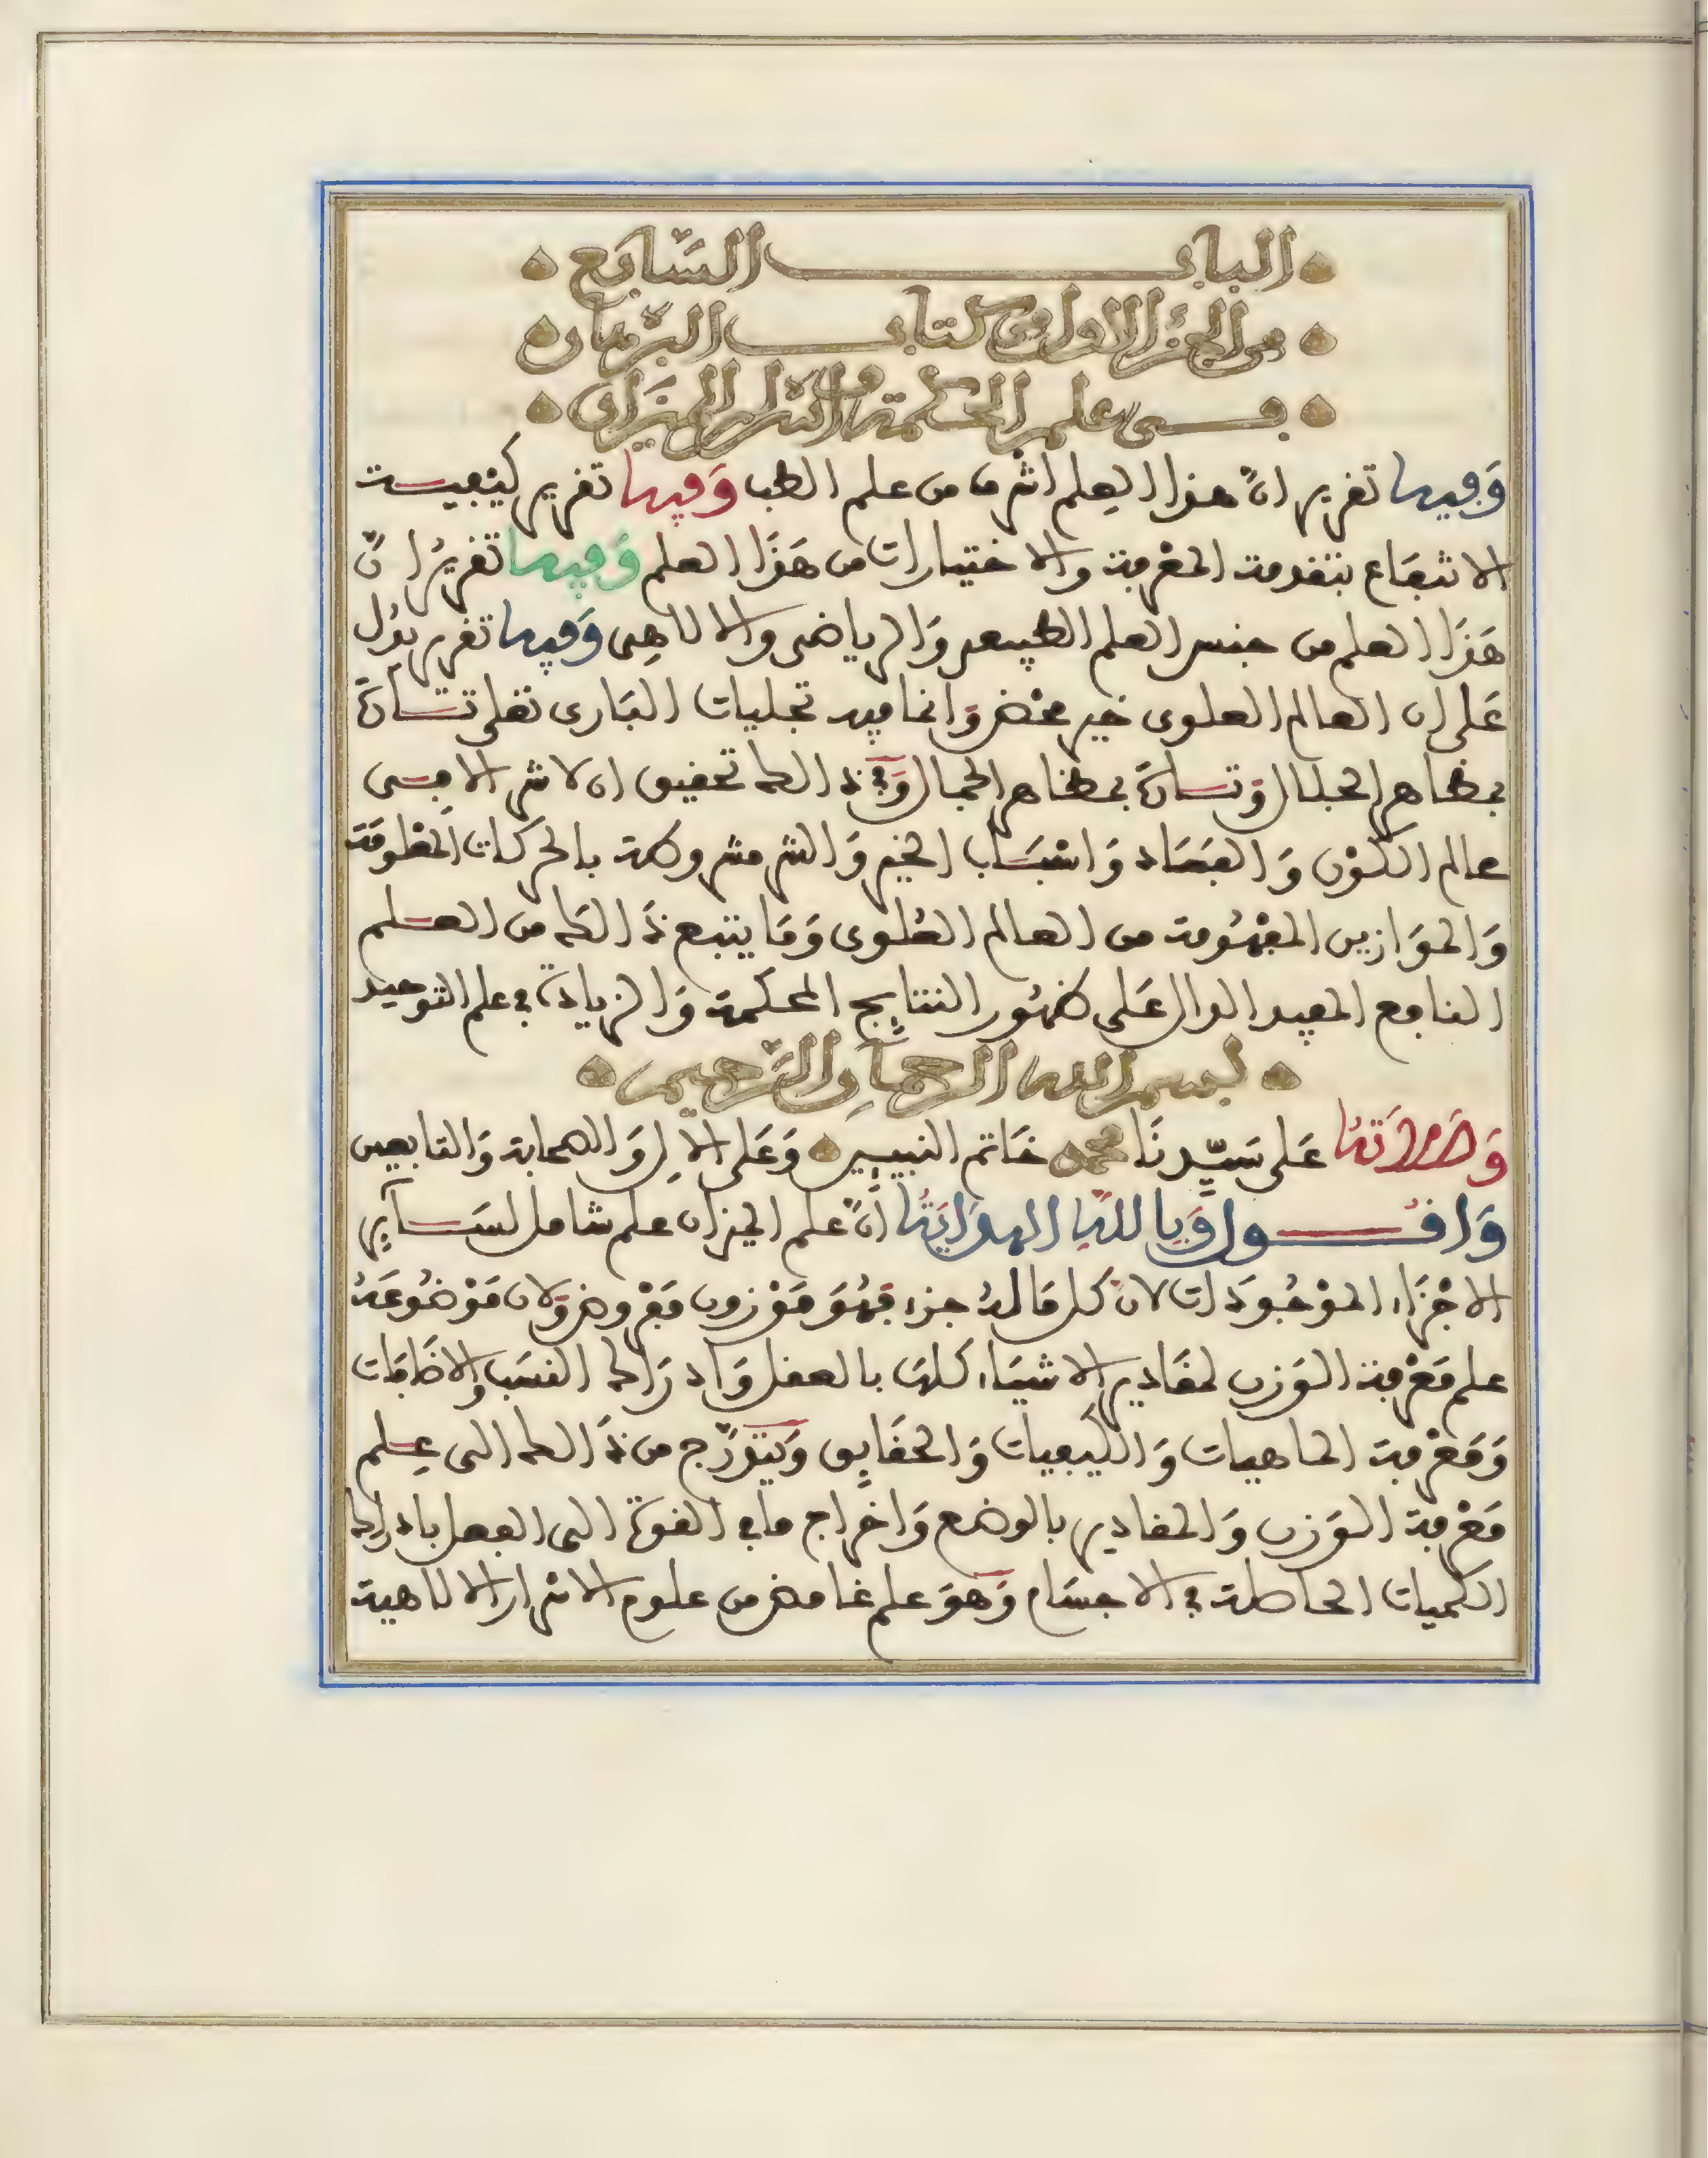 الباب السابع
من الجزء الاول من كتاب البرهان
في علم الحكمة واسرار الميزان
وفيه تقرير ان هذا العلم اشرف من علم الطب وفيه تقرير كيفيت
الانتفاع بتقدمة المعرفة والاختيارات من هذا العلم وفيه تقرير ان
هذا العلم من جنس العلم الطبيعي والرياضي والالاهي وفيه تقرير يدل
على ان العالم العلوي خير محض وانما فيه تجليات الباري تعلى تارة
بمظاهر الجلال وتارة بمظاهر الجمال وفي ذالك تحقيق ان لا شر الا في
عالم الكون والفساد واسباب الخير والشر مشروطة بالحركات المعلومة
والموازين المفهومة من العالم العلوي وما يتبع ذالك من العلم
النافع المفيد الدال على ظهور النتايج المحكمة والزيادة في علم التوحيد
بسم الله الرحمان الرحيم
وصلاته على سيدنا محمد خاتم النبيين وعلى الال والصحابة والتابعين
واقول وبالله الهداية ان علم الميزان علم شامل لساير
الاجزاء الموجودات لان كل ما له جزء فهو موزون مفروض ولان موضوعه
علم معرفة الوزن لمقادير الاشياء كلها بالعقل وادراك النسب والاضافات
ومعرفة الماهيات والكيفيات والحقايق ويتدرج من ذالك الى علم
معرفة الوزن والمقادير بالوضع واخراج ما في القوة الى الفعل بادراك
الكميات الحاصلة في الاجسام وهو علم غامض من علوم الاسرار الالاهية